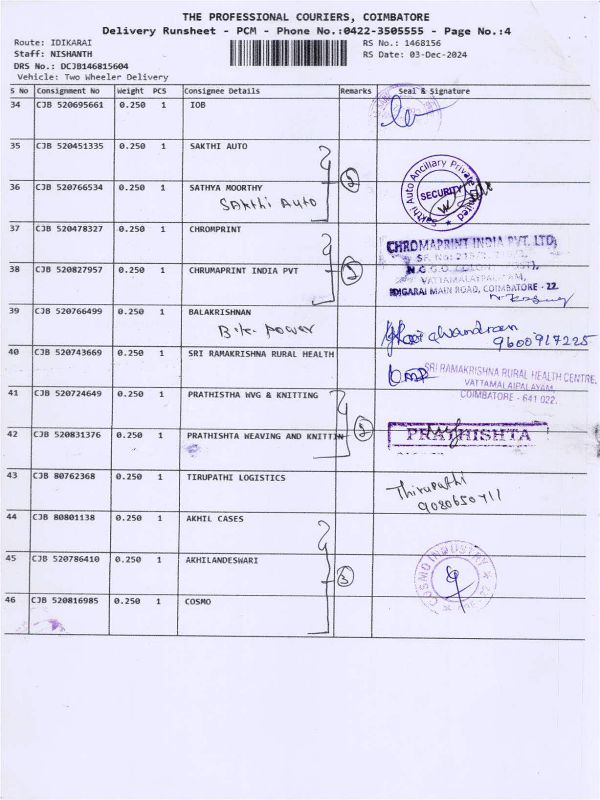 THE PROFESSIONAL COURIERS, COIMBATORE
Delivery Runsheet - PCM - Phone No.:0422-3505555 - Page No.:4
Route: IDIKARAI
RS No.: 1468156
Staff: NISHANTH
RS Date: 03-Dec-2024
DRS No.: DCJB146815604
Vehicle: Two Wheeler Delivery
S No Consignment No Weight PCS Consignee Details Remarks Seal & Signature
34 CJB 520695661 0.250 1 IOB
35 CJB 520451335 0.250 1 SAKTHI AUTO
36 CJB 520766534 0.250 1 SATHYA MOORTHY
Sakthi Auto
2
Sakthi Auto Ancillary Private Limited
SECURITY
37 CJB 520478327 0.250 1 CHROMPRINT
38 CJB 520827957 0.250 1 CHRUMAPRINT INDIA PVT
2
CHROMAPRINT INDIA PVT. LTD
VATTAMALAIPALAYAM,
IDIGARAI MAIN ROAD, COIMBATORE - 22.
39 CJB 520766499 0.250 1 BALAKRISHNAN
power
9600917225
40 CJB 520743669 0.250 1 SRI RAMAKRISHNA RURAL HEALTH
SRI RAMAKRISHNA RURAL HEALTH CENTRE,
VATTAMALAIPALAYAM,
COIMBATORE - 641 022.
41 CJB 520724649 0.250 1 PRATHISTHA WVG & KNITTING
42 CJB 520831376 0.250 1 PRATHISHTA WEAVING AND KNITTIN
2
PRATHISHTA
43 CJB 80762368 0.250 1 TIRUPATHI LOGISTICS
Thirupathi
9080650711
44 CJB 80801138 0.250 1 AKHIL CASES
45 CJB 520786410 0.250 1 AKHILANDESWARI
46 CJB 520816985 0.250 1 COSMO
3
COSMO INDUSTRY